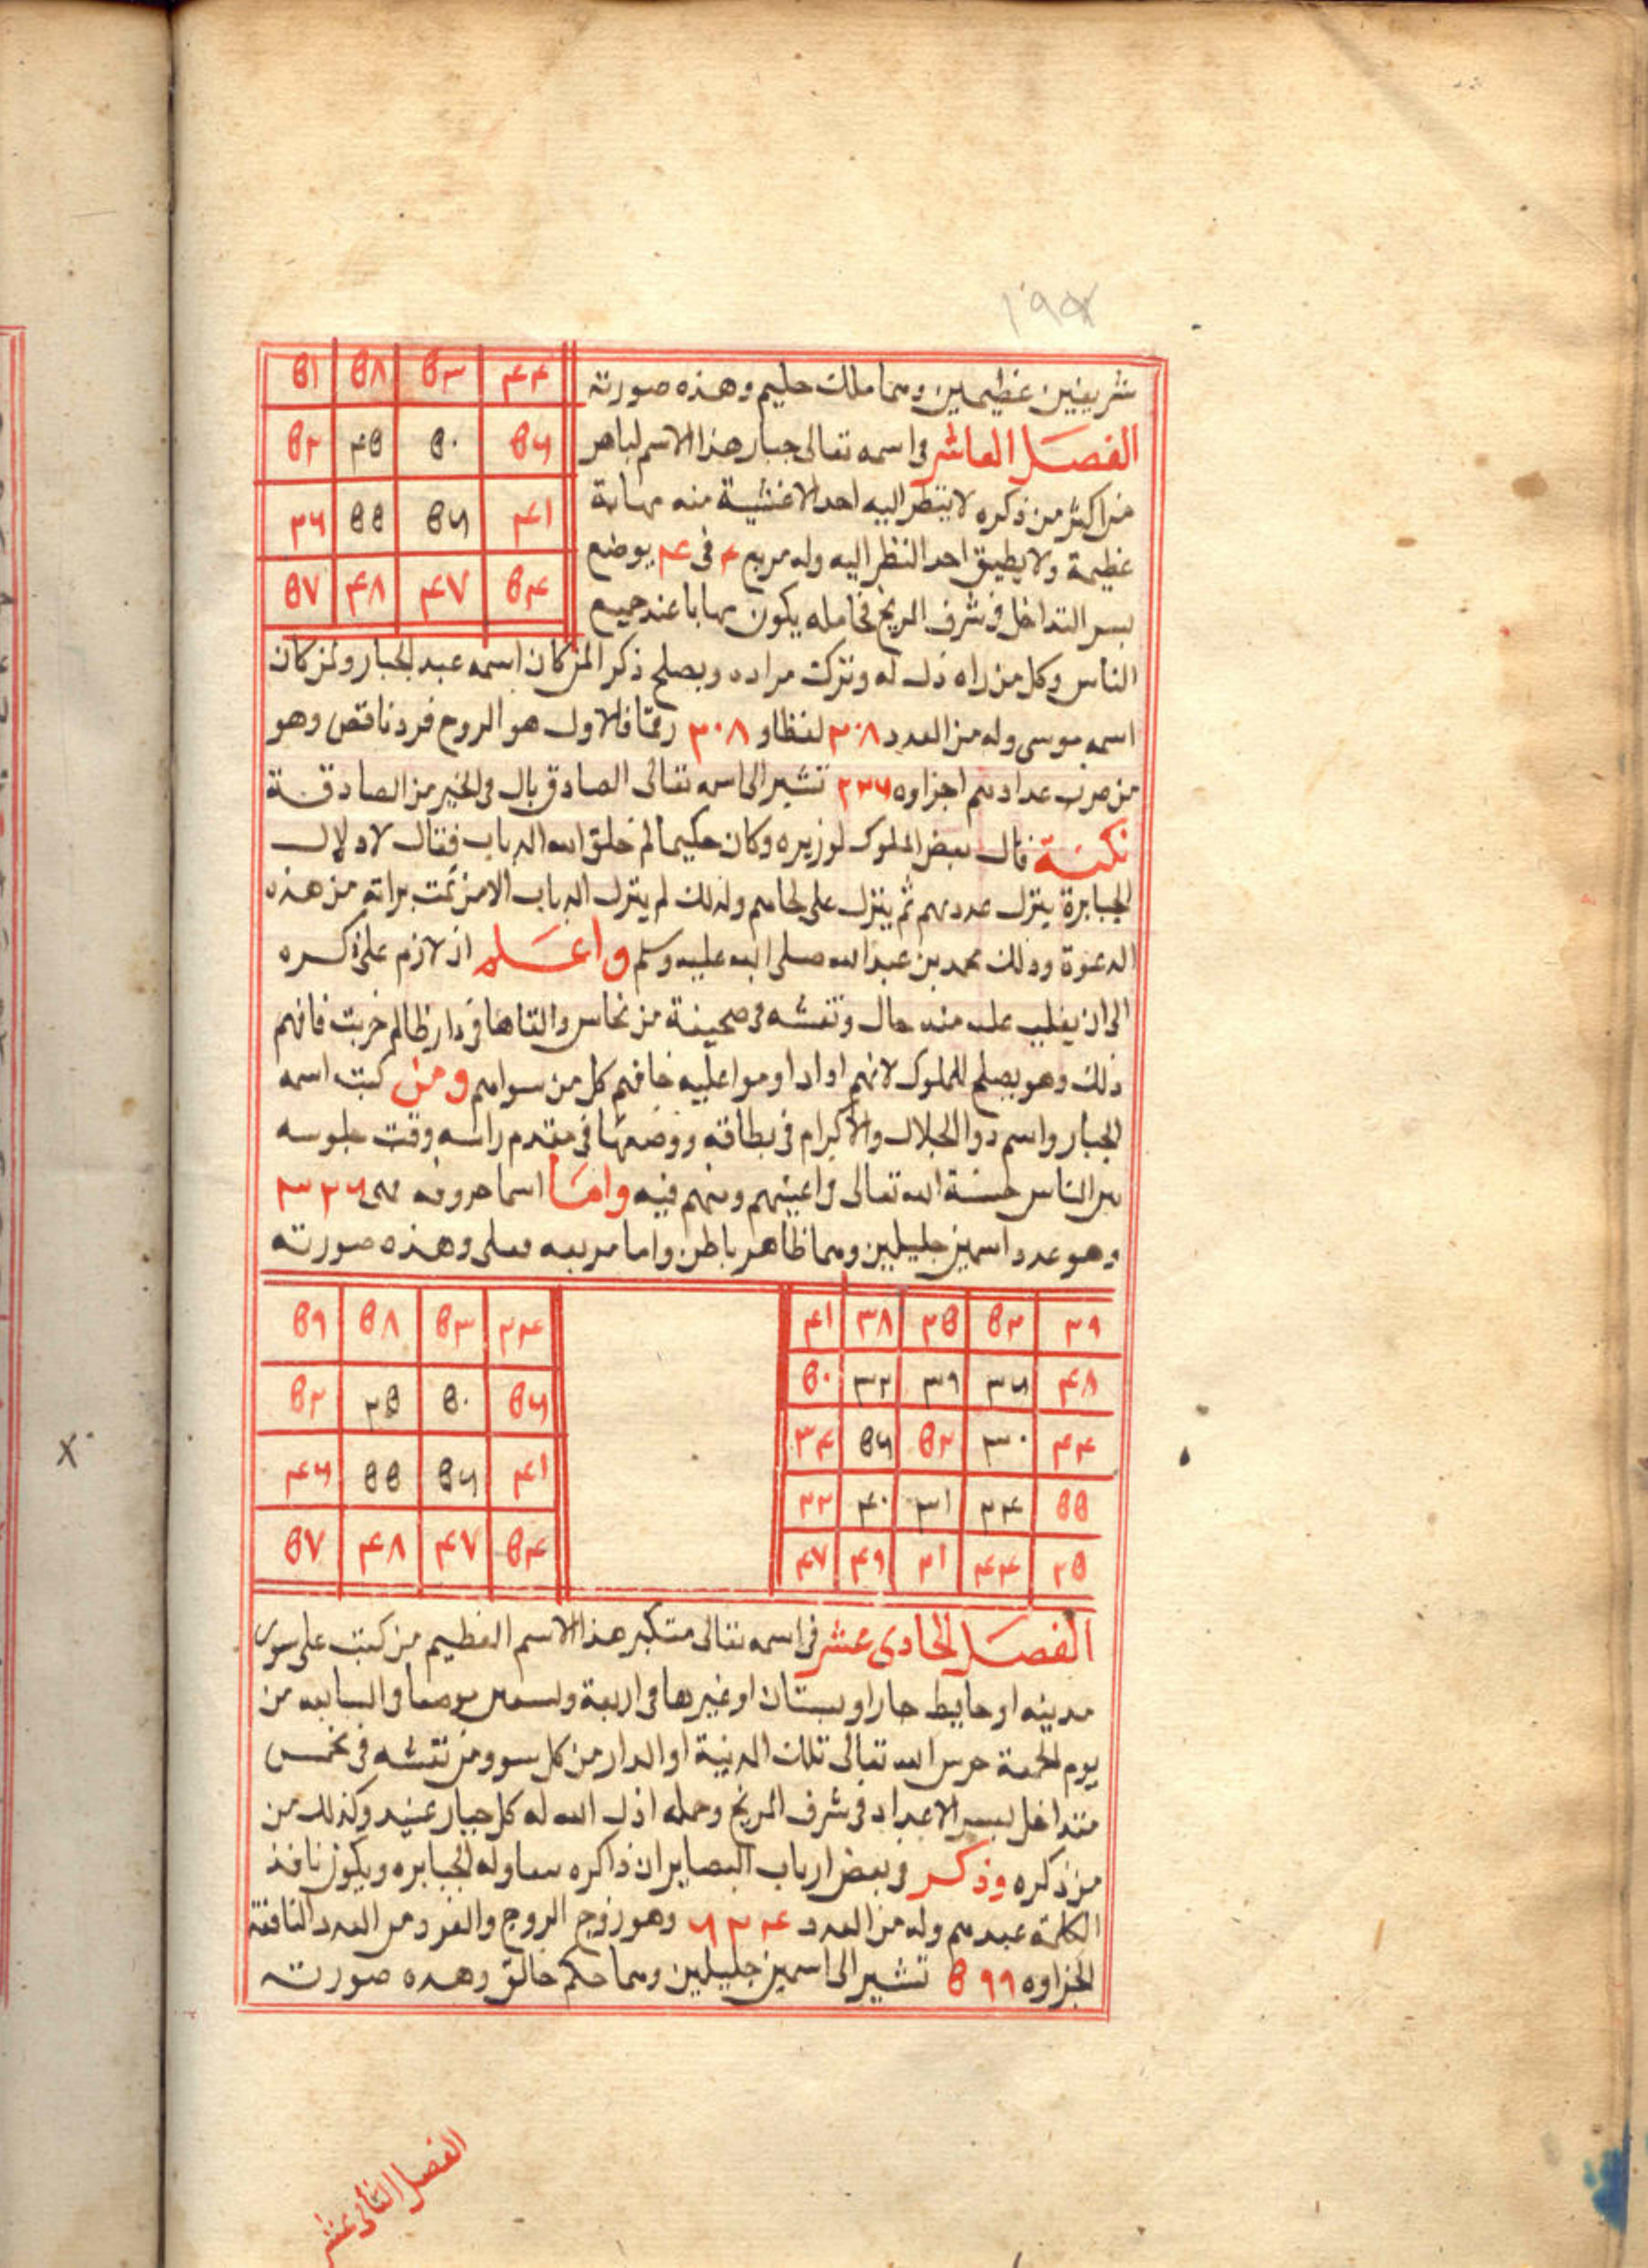 ١٩٥
شريفين عظيمين وهما ملك حليم وهذه صورته
٤٤ ٥٣ ٥٨ ٥١
الفصل العاشر في اسمه تعالى جبار هذا الاسم لباهر
٥٦ ٥٠ ٤٥ ٥٢
من اكثر من ذكره لا ينظر اليه احد الا غشية منه مهابة
٤١ ٥٦ ٥٥ ٣٦
عظيمة ولا يطيق احد النظر اليه وله مربع ٤ في ٤ يوضع
٥٤ ٤٧ ٤٨ ٥٧
بسر التداخل في شرف المريخ فحامله يكون مهابا عند جميع
الناس وكل من راه ذل له وترك مراده ويصلح ذكرا لمن كان اسمه عبد الجبار ولمن كان
اسمه موسى وله من العدد ٢٠٨ لفظا و ٣٠٨ رقما فالاول هو الزوج فرد ناقص وهو
من ضرب عداد هم اجزاوه ٢٣٦ تشير الى اسمه تعالى الصادق بال في الخير من الصادقة
نكتة قال بعض الملوك لوزيره وكان حكيما لم خلق الله الذباب فقال لاذلال
الجبابرة ينزل عددهم ثم ينزل على لحاهم ولذلك لم ينزل الذباب الا من تمت براته من هذه
الدعوة وذلك محمد بن عبد الله صلى الله عليه وسلم واعلم ان لازم على ذكره
الى ان يغلب عليه منه حال ونقشه في صحيفة من نحاس والقاها في دار ظالم خربت فافهم
ذلك وهو يصلح للملوك لانهم اذا داوموا عليه خافهم كل من سواهم ومن كتب اسمه
الجبار واسم ذوالجلال والاكرام في بطاقة ووضعها في مقدم راسه وقت جلوسه
بين الناس حسنة الله تعالى في اعينهم ومنهم فيه واما اسما حروفه فهي ٣٢٦
وهو عدد اسمين جليلين وهما ظاهر باطن واما مربعه فعلى وهذه صورته
٢٩ ٥٢ ٣٥ ٣٨ ٤١
٤٨ ٣٦ ٣٩ ٣٢ ٥٠
٤٤ ٣٠ ٥٢ ٥٦ ٣٤
٥٥ ٢٤ ٣١ ٤٠ ٢٢
٢٥ ٤٤ ٢١ ٤٩ ٤٧
٢٤ ٥٣ ٥٨ ٥٩
٥٦ ٥٠ ٢٥ ٥٢
٤١ ٥٦ ٥٥ ٤٦
٥٤ ٤٧ ٤٨ ٥٧
الفصل الحادى عشر في اسمه تعالى متكبر هذا الاسم العظيم من كتبه على سور
مدينه او حايط دار او بستان او غيرها في اربعة وتسعين موضعا والسابعه من
يوم الجمعة حرس الله تعالى تلك المدينة او الدار من كل سوء ومن نقشه في مخمس
متداخل بسر الاعداد في شرف المريخ وحمله اذل الله له كل جبار عنيد وكذلك من
من ذكره وذكر في بعض ارباب البصاير ان ذاكره له الجبابره ويكون نافذ
الكلمة عندهم وله من العدد ٦٢٤ وهو زوج الزوج والفرد ومن العدد الناقصة
اجزاوه ٥٩٩ تشير الى اسمين جليلين وهما حكم خالق وهذه صورته
الفصل الثانى عشر